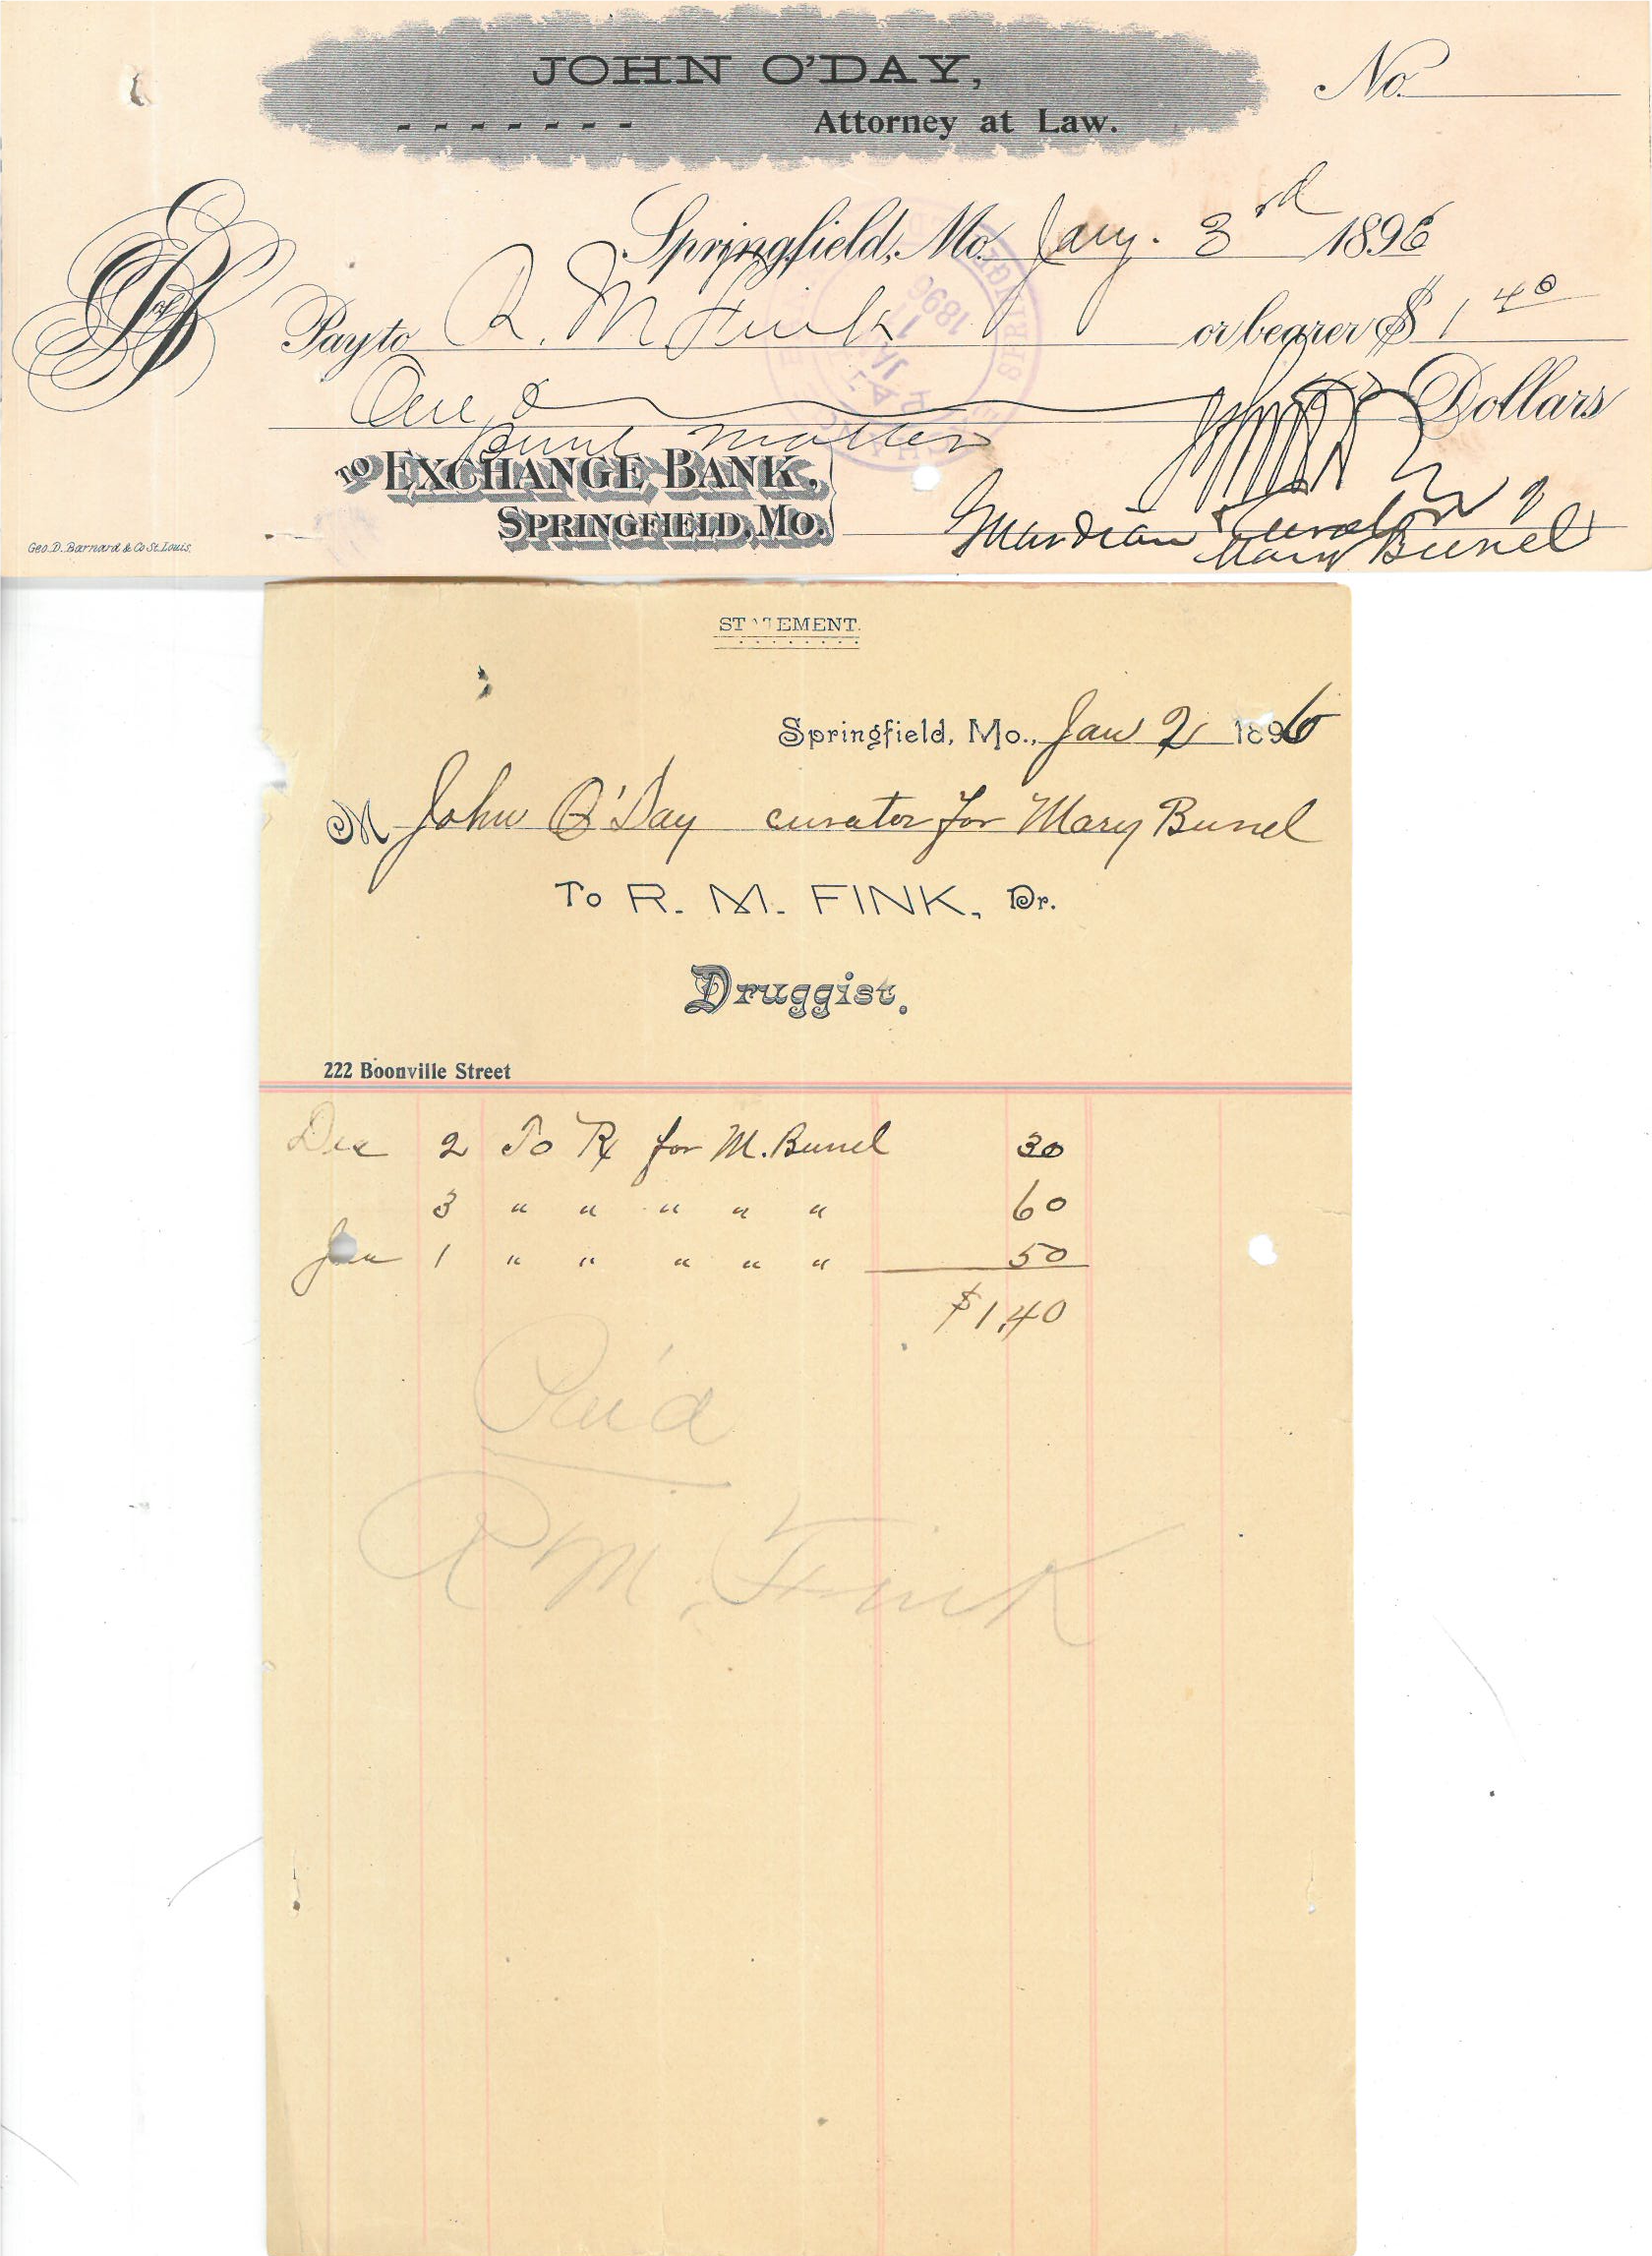 JOHN O'DAY,
Attorney at Law.
No.
Springfield, Mo. Jany. 3rd 1896
Pay to R. M Fink or bearer $ 1 40
One & Dollars
Bunel matter
TO EXCHANGE BANK,
SPRINGFIELD, MO.
Guardian & Curator of
Mary Bunel
Geo. D. Barnard & Co St. Louis.
1896
STATEMENT.
Springfield, Mo., Jan 2 1896
M John O'Day curator for Mary Bunel
To R. M. FINK, Dr.
Druggist.
222 Boonville Street
Dec 2 To Rx for M. Bunel 30
3 " " " " " 60
Jan 1 " " " " " 50
$1,40
Paid
R M. Fink